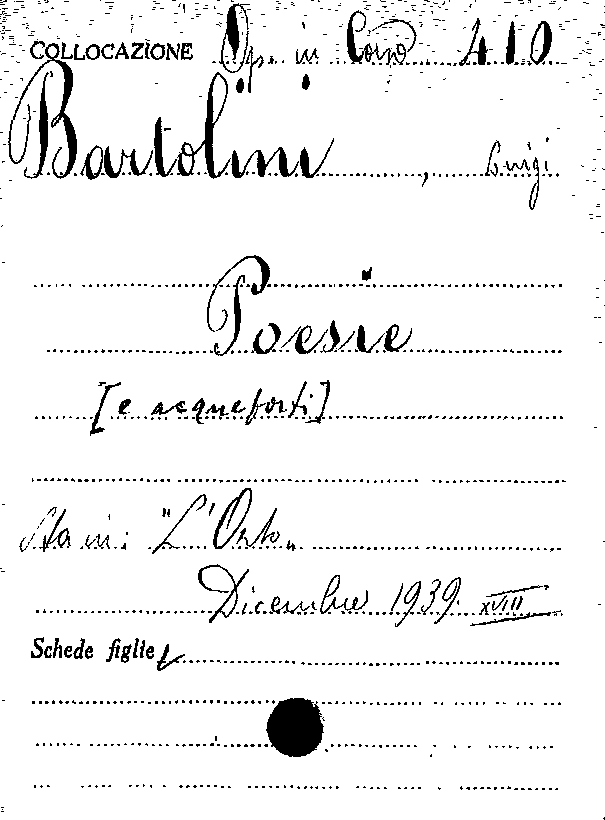 COLLOCAZIONE Op. in Corso 410
Bartolini, Luigi
Poesie
[e acqueforti]
Sta in: "L'Orto"
Dicembre 1939. XVIII
Schede figlie